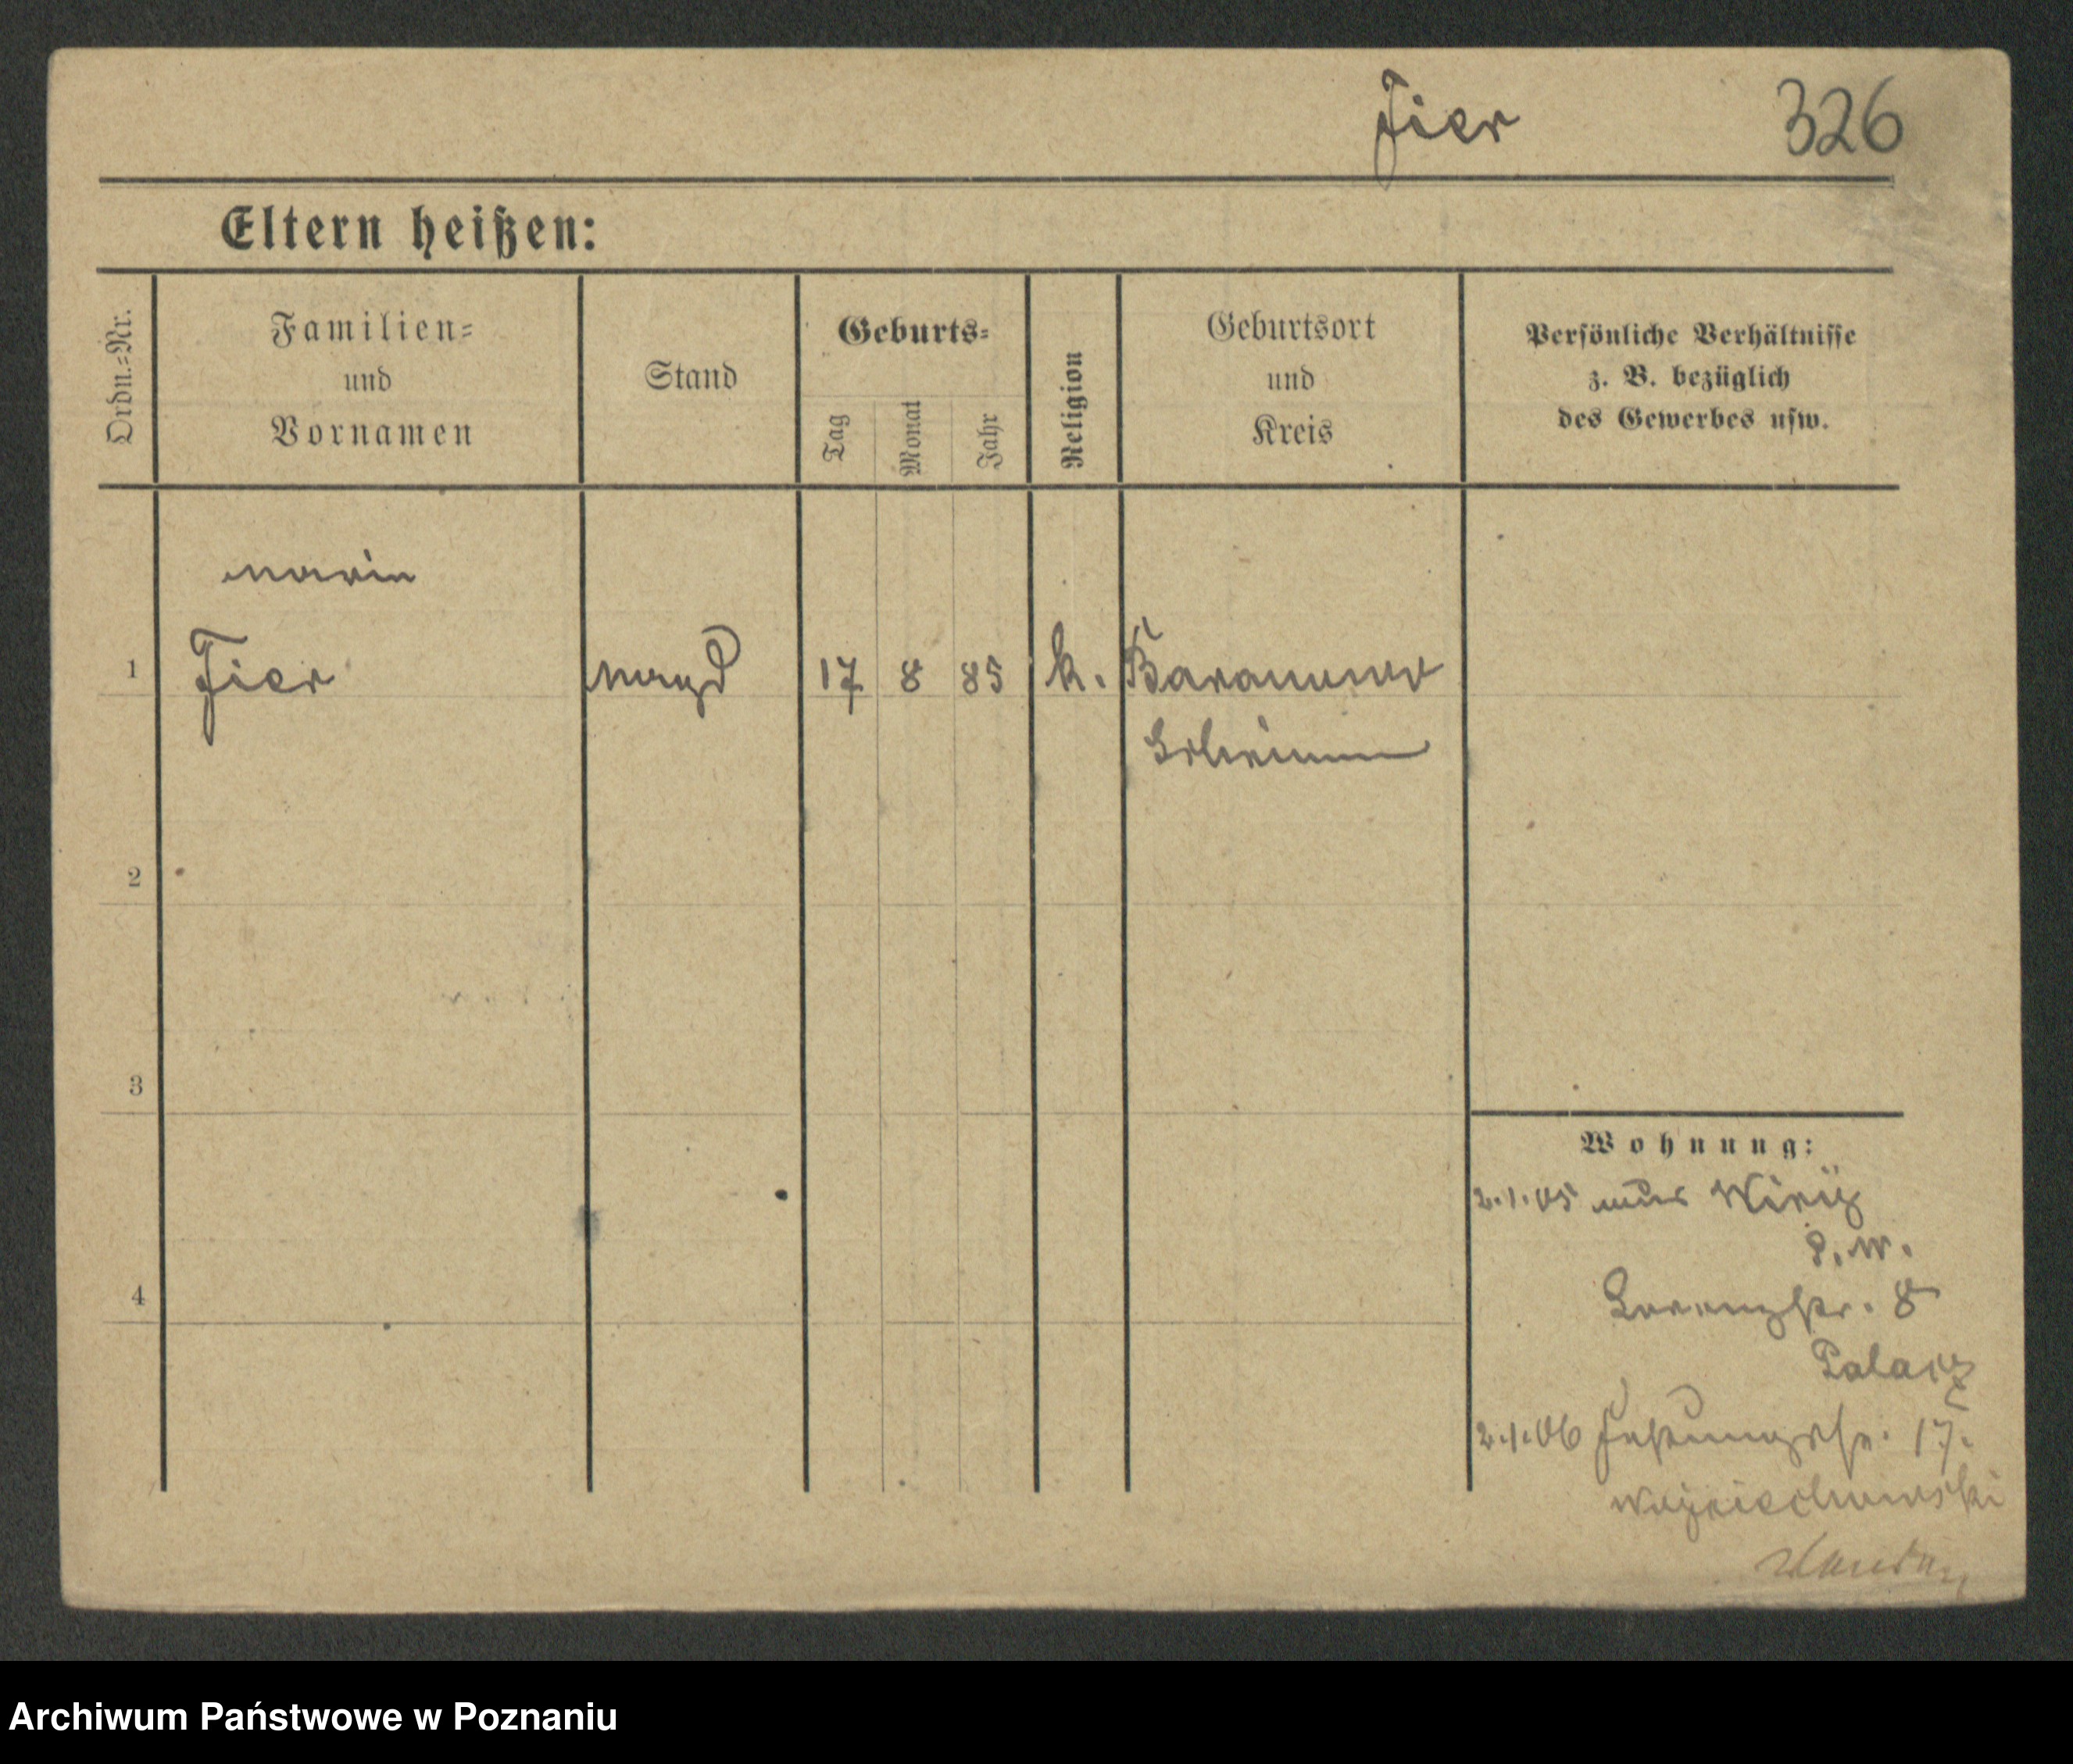 Fier 326
Eltern heißen:
Ordn.=Nr.
Familien=
und
Vornamen
Stand
Geburts=
Tag
Monat
Jahr
Religion
Geburtsort
und
Kreis
Persönliche Verhältnisse
z. B. bezüglich
des Gewerbes usw.
Maria
1 Fier Magd 17 8 85 k. Baranowo
Schrimm
2
3
Wohnung:
2.1.05 aus
P.W.
4
Lorenzstr. 8
Palacz
2.1.06 Festungsstr. 17.
Wojciechowski
Archiwum Państwowe w Poznaniu